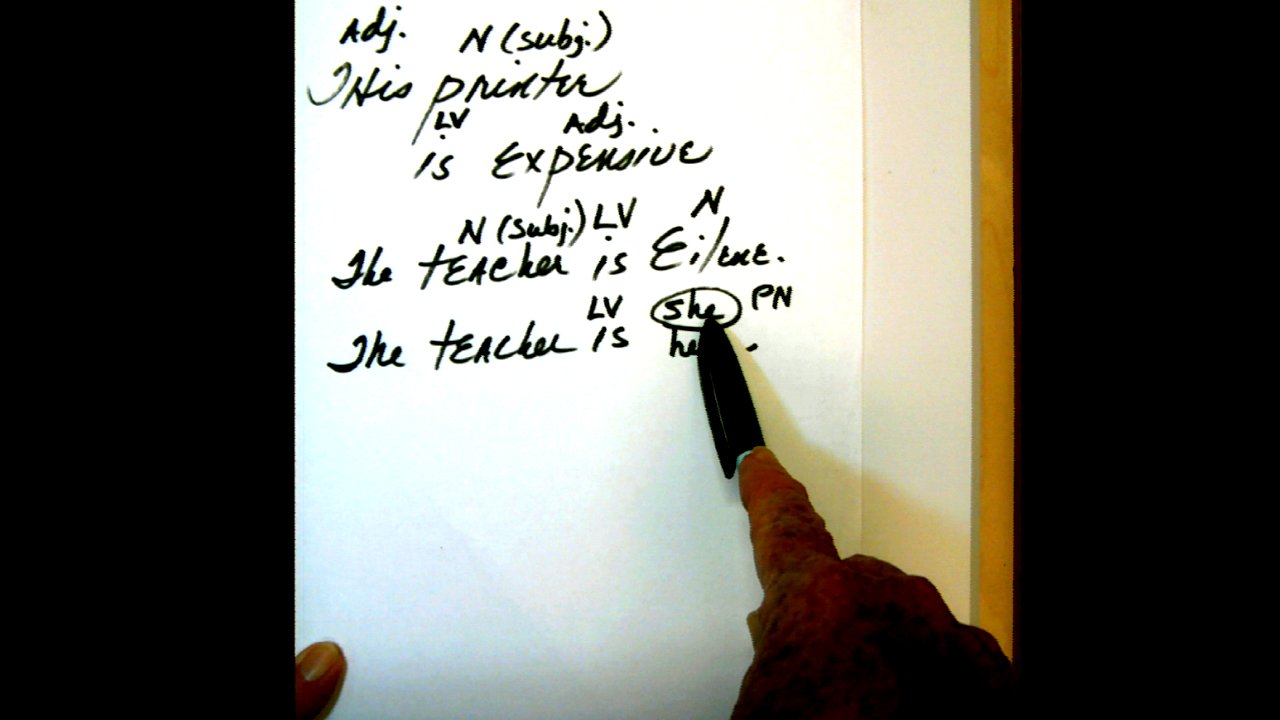 Adj. N (subj.)
This printer
LV Adj.
is Expensive
N (subj.) LV N
The teacher is Eilene.
LV she PN
The teacher is he .